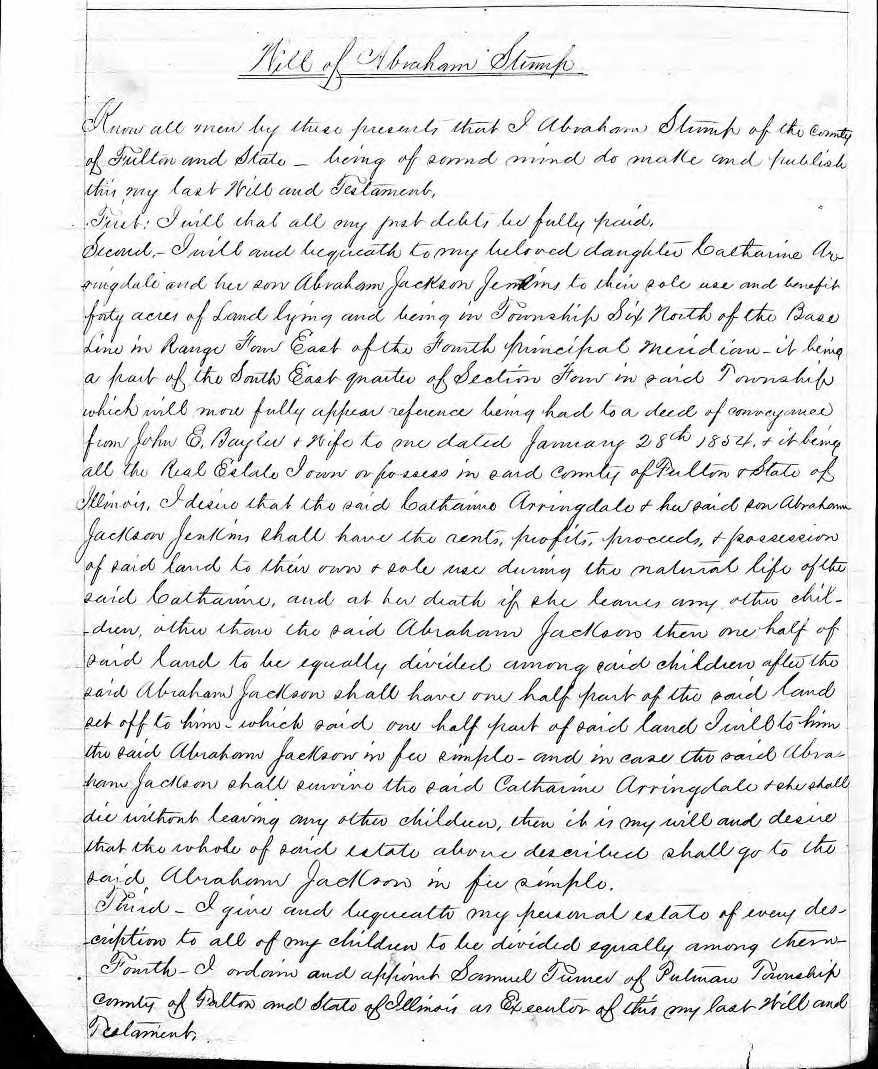 Will of Abraham Stump
Know all men by these presents that I Abraham Stump of the county
of Fulton and State – being of sound mind do make and publish
this my last Will and Testament.
First: I will that all my just debts be fully paid.
Second,– I will and bequeath to my beloved daughter Catharine Ar-
ringdale and her son Abraham Jackson Jenkins to their sole use and benefit
forty acres of Land lying and being in Township Six North of the Base
Line in Range Four East of the Fourth principal Meridian – it being
a part of the South East quarter of Section Four in said Township
which will more fully appear reference being had to a deed of conveyance
from John E. Bayler & Wife to me dated January 28th 1854, & it being
all the Real Estate I own or possess in said county of Fulton & State of
Illinois. I desire that the said Catharine Arringdale & her said son Abraham
Jackson Jenkins shall have the rents, profits, proceeds, & possession
of said land to their own & sole use during the natural life of the
said Catharine, and at her death if she leaves any other chil-
-dren, other than the said Abraham Jackson then one half of
said land to be equally divided among said children after the
said Abraham Jackson shall have one half part of the said land
set off to him – which said one half part of said land I will to him
the said Abraham Jackson in fee simple – and in case the said Abra-
ham Jackson shall survive the said Catharine Arringdale & she shall
die without leaving any other children, then it is my will and desire
that the whole of said estate above described shall go to the
said Abraham Jackson in fee simple.
Third – I give and bequeath my personal estate of every des-
-cription to all of my children to be divided equally among them –
Fourth – I ordain and appoint Samuel Turner of Putman Township
county of Fulton and State of Illinois as Executor of this my last Will and
Testament.